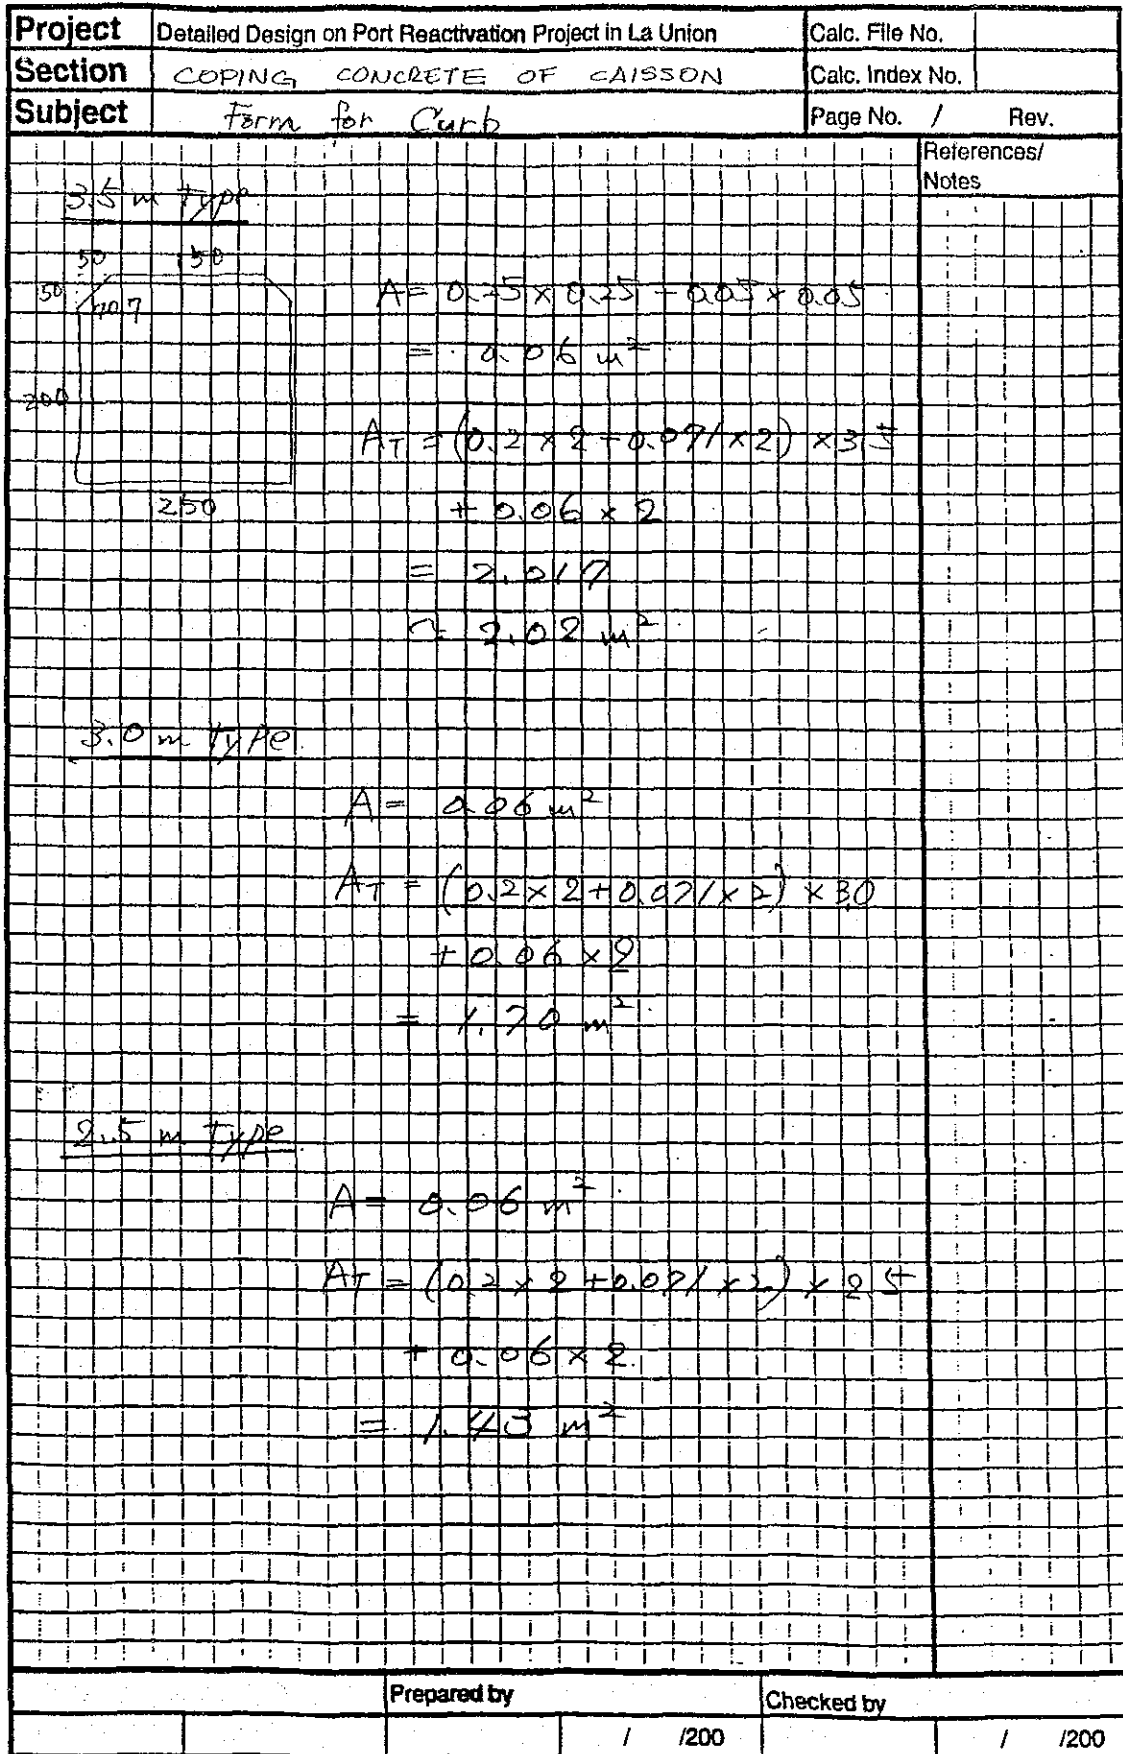 Project Detailed Design on Port Reactivation Project in La Union Calc. File No.
Section COPING CONCRETE OF CAISSON Calc. Index No.
Subject Form for Curb Page No. / Rev.
References/
Notes
3.5 m type
50 150
50 70.7
A = 0.25 x 0.25 - 0.05 x 0.05
= 0.06 m²
200
AT = (0.2 x 2 + 0.071 x 2) x 3.5
250 + 0.06 x 2
= 2.017
≃ 2.02 m²
3.0 m type
A = 0.06 m²
AT = (0.2 x 2 + 0.071 x 2) x 3.0
+ 0.06 x 2
= 1.70 m²
2.5 m type
A = 0.06 m²
AT = (0.2 x 2 + 0.071 x 2) x 2.5
+ 0.06 x 2
= 1.43 m²
Prepared by Checked by
/ /200 / /200